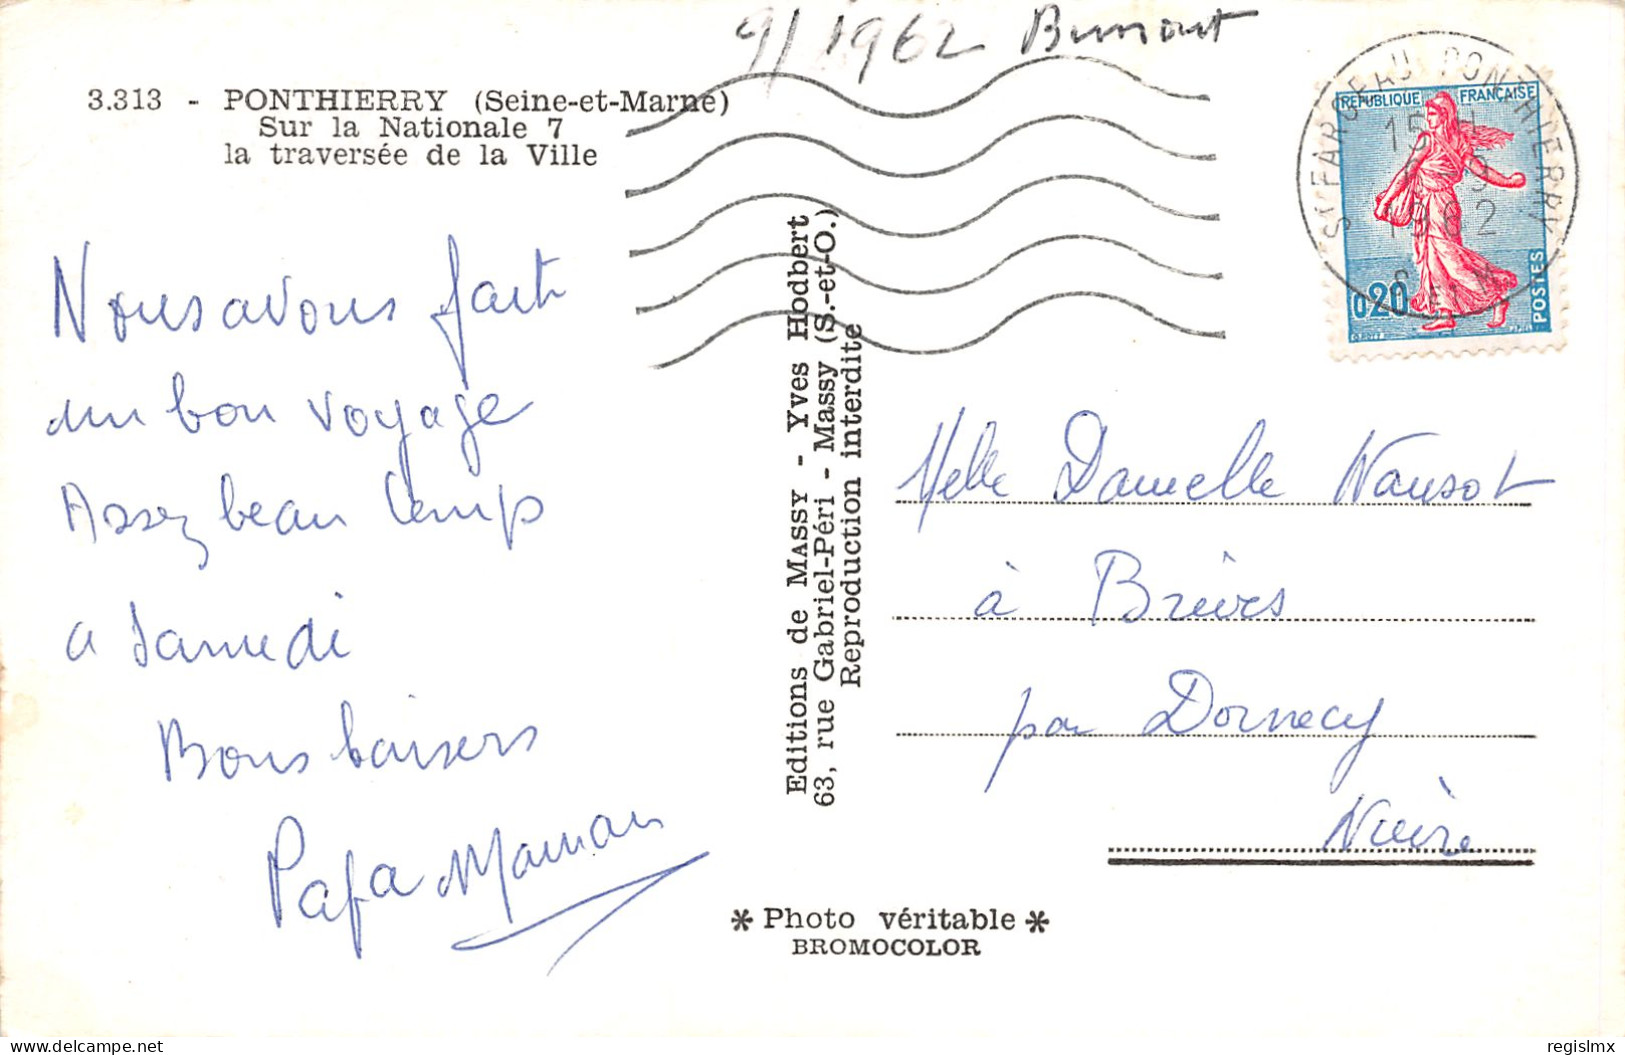 9/1962
3.313 - PONTHIERRY (Seine-et-Marne)
Sur la Nationale 7
la traversée de la Ville
Nous avons fait
un bon voyage
Assez beau temps
a Samedi
Bons baisers
Papa Maman
Editions de MASSY - Yves Hodbert
63, rue Gabriel-Péri - Massy (S.-et-O.)
Reproduction interdite
* Photo véritable *
BROMOCOLOR
ST FARGEAU PONTHIERRY
15 H
-9
1962
S. ET M.
REPUBLIQUE FRANÇAISE
0,20
POSTES
Melle Danielle
à Brèves
par Dornecy
Nièvre
regislmx
delcampe.net